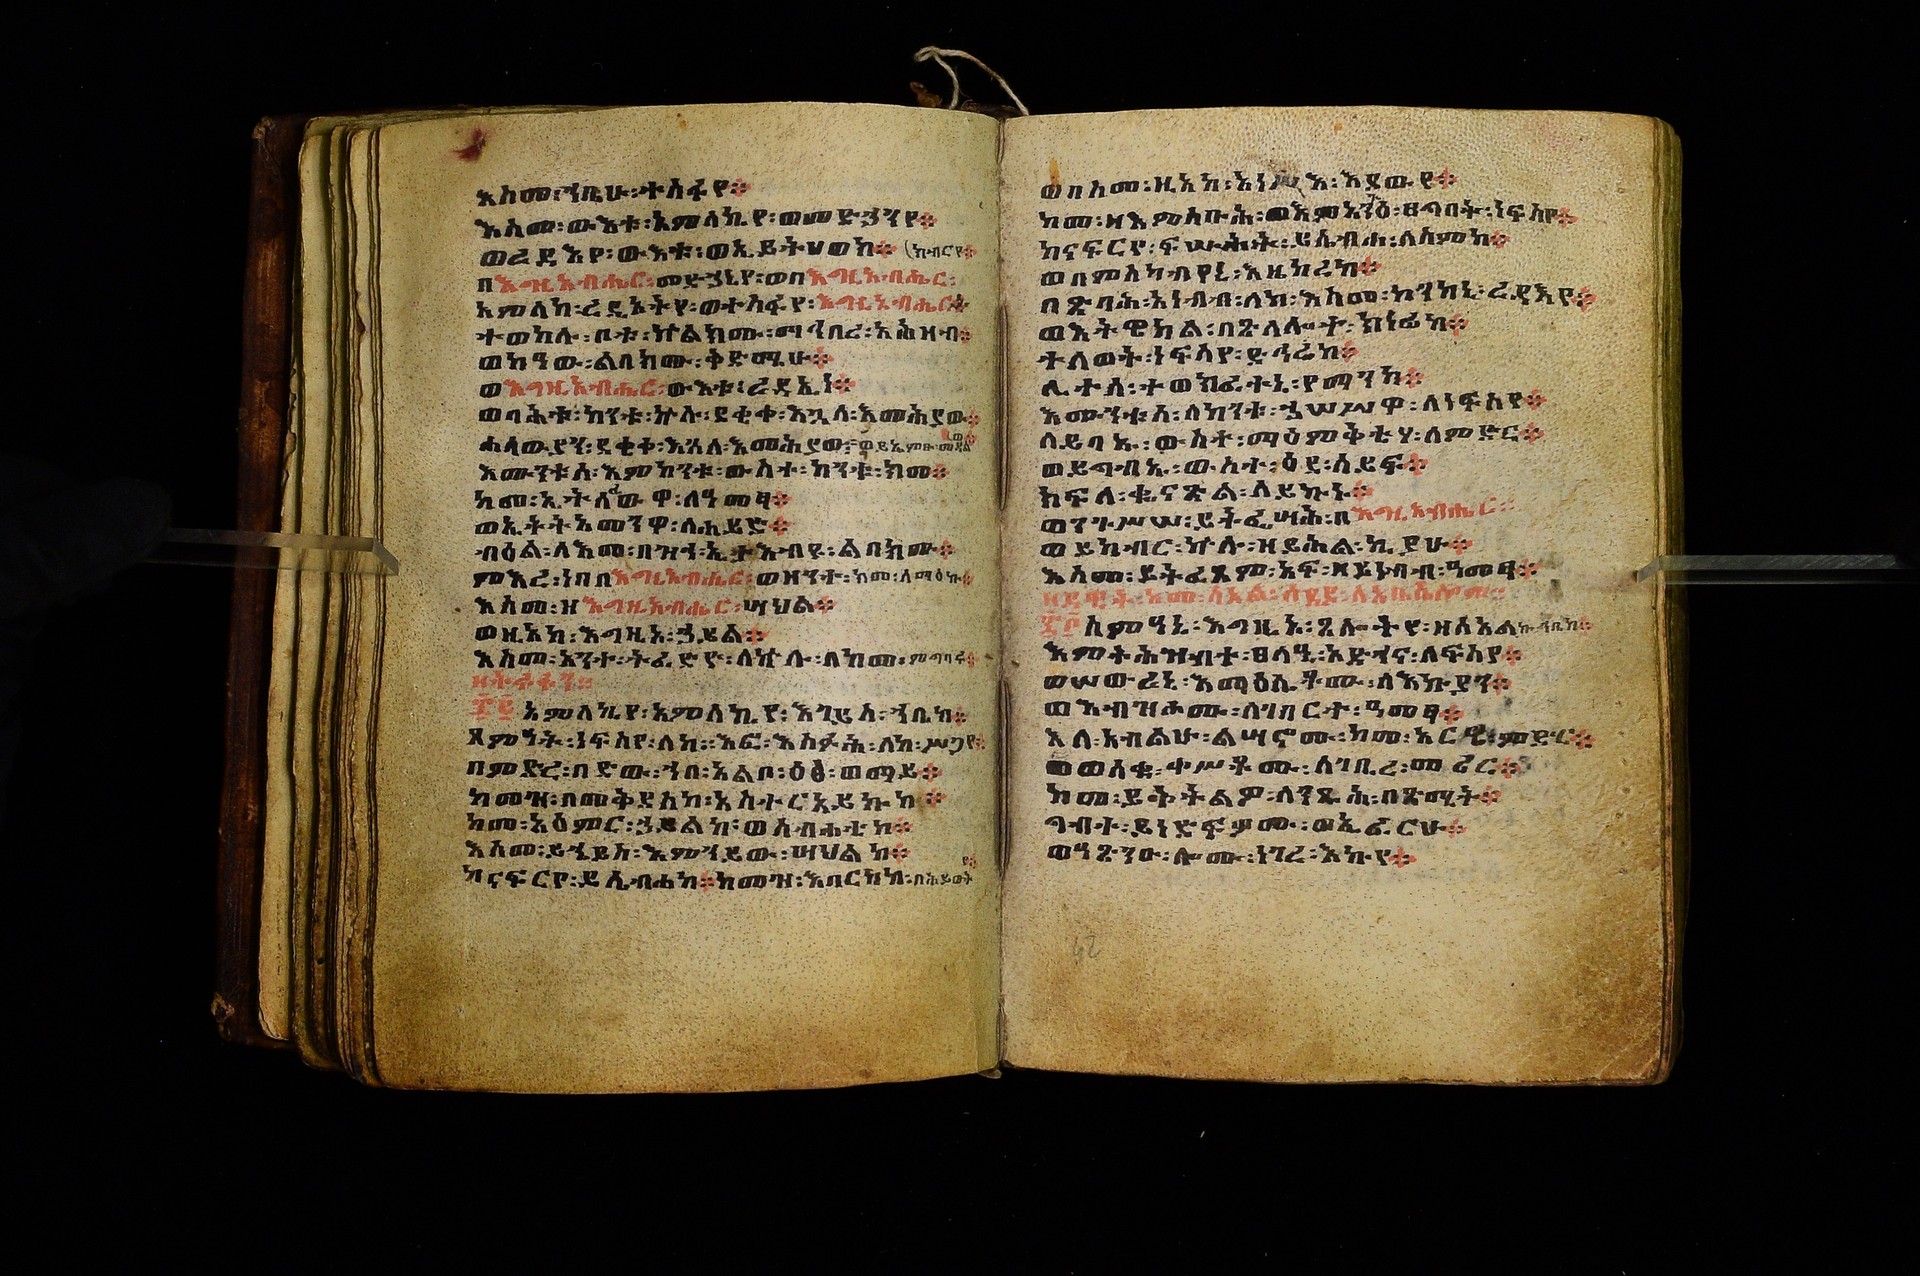 እስመ፡ኀቤሁ፡ተስፋየ።
እስመ፡ውእቱ፡አምላኪየ፡ወመድኃንየ።
ወረዳእየ፡ውእቱ፡ወኢይትሀወክ። (ክብርየ።
በእግዚአብሔር፡መድኃኒየ፡ወበእግዚአብሔር፡
አምላከ፡ረዲኦትየ፡ወተስፋየ፡እግዚአብሔር።
ተወከሉ፡ቦቱ፡ኵልክሙ፡ማኅበረ፡አሕዛብ።
ወከዓው፡ልበክሙ፡ቅድሜሁ።
ወእግዚአብሔር፡ውእቱ፡ረዳኢነ።
ወባሕቱ፡ከንቱ፡ኵሉ፡ደቂቀ፡እጓለ፡እመሕያው።
ሐሳውያን፡ደቂቀ፡እጓለ፡እመሕያው፡
እሙንቱሰ፡እምከንቱ፡ውስተ፡ከንቱ፡ክመ።
ከመ፡ኢትሰፈውዋ፡ለዓመፃ።
ወኢትትአመንዋ፡ለሐይድ።
ብዕል፡ለእመ፡በዝኀ፡ኢታእብዩ፡ልበክሙ።
ምዕረ፡ነበበእግዚአብሔር፡ወዘንተ፡ከመ፡ሰማዕኩ።
እስመ፡ዘእግዚአብሔር፡ሣህል።
ወዚአከ፡እግዚኦ፡ኃይል።
እስመ፡አንተ፡ትፈድዮ፡ለኵሉ፡በከመ፡ምግባሩ።
፷፪ አምላኪየ፡አምላኪየ፡እገይስ፡ኀቤከ።
ጸምዓት፡ነፍስየ፡ለከ፡እፎ፡እስፋሕ፡ለከ፡ሥጋየ።
በምድረ፡በድው፡ኀበ፡አልቦ፡ዕፅ፡ወማይ።
ከመዝ፡በመቅደስከ፡አስተርአይኩከ።
ከመ፡አዕምር፡ኃይለከ፡ወስብሐቲከ።
እስመ፡ይኄይስ፡እምሕይው፡ሣህልከ።
ከናፍርየ፡ይሴብሐከ።ከመዝ፡እባርከከ፡በሕይወትየ።
ወበስመ፡ዚአከ፡አነሥእ፡እደውየ።
ከመ፡ዘእምስቡሕ፡ወእምአንጕዕ፡ፀግበት፡ነፍስየ።
ከናፍርየ፡ፍሡሕት፡ይሴብሐ፡ለስምከ።
ወበምስካብየኒ፡እዜከረከ።
በጽባሕ፡እነብብ፡ለከ፡እስመ፡ኮንከኒ፡ረዳእየ።
ወእትዌከል፡በጽላሎተ፡ክነፊከ።
ተለወት፡ነፍስየ፡ድኅሬከ።
ሊተሰ፡ተወክፈተኒ፡የማንከ።
እሙንቱሰ፡ለከንቱ፡ኃሠሥዋ፡ለነፍስየ።
ለይባኡ፡ውስተ፡ማዕምቅቲሃ፡ለምድር።
ወይግብኡ፡ውስተ፡ዕደ፡ሰይፍ።
ክፍለ፡ቈናጽል፡ለይኩኑ።
ወንጉሥሰ፡ይትፌሣሕ፡በእግዚአብሔር።
ወይከብር፡ኵሉ፡ዘይሕል፡ኪያሁ።
እስመ፡ይትፈጸም፡አፍ፡ዘይነብብ፡ዓመፃ።
፷፫ ስምዓኒ፡እግዚኦ፡ጸሎትየ፡ዘሰአልኩ፡ኀቤከ።
እምትሕዝብተ፡ፀላዒ፡አድኅና፡ለነፍስየ።
ወሠውረኒ፡እማዕሌቶሙ፡ለእኩያን።
ወእብዝኆሙ፡ለገበርተ፡ዓመፃ።
እለ፡አብልሁ፡ልሣኖሙ፡ከመ፡አርዌ፡ምድር።
ወወሰቁ፡ቀሥቶሙ፡ለገቢረ፡መሪር።
ከመ፡ይቅትልዎ፡ለንጹሕ፡በጽሚት።
ግብተ፡ይነድፍዎሙ፡ወኢፈርሁ።
ወዓጽንዑ፡ሎሙ፡ነገረ፡እኩየ።
42